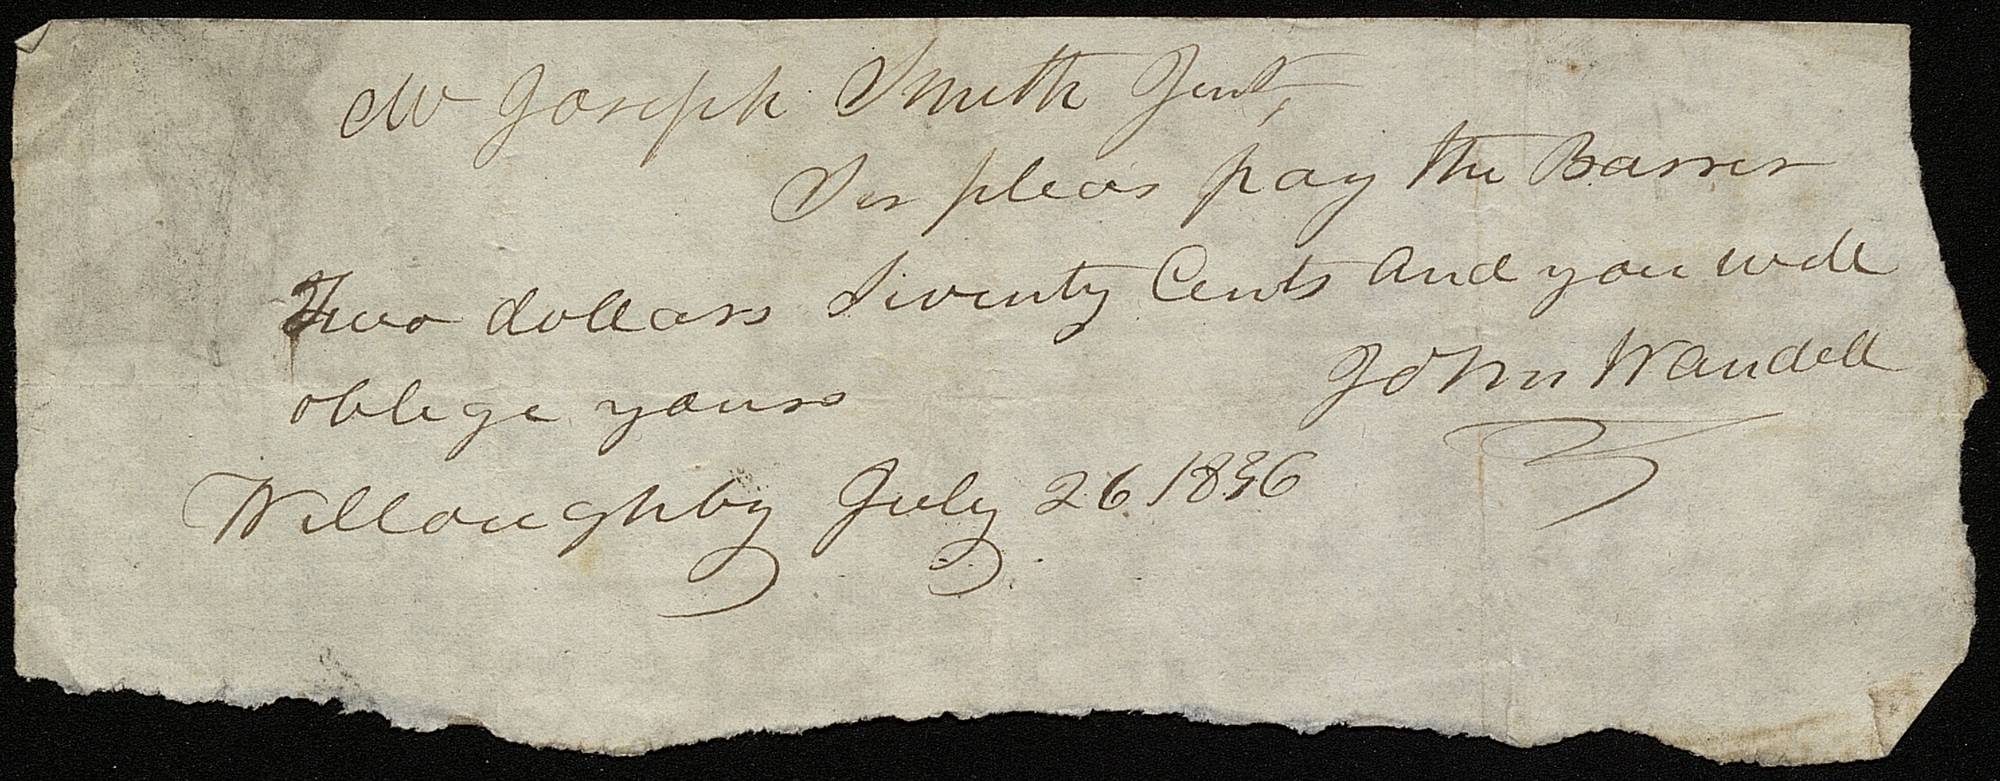 Mr Joseph Smith Junt,
Sir pleas pay the Barrer
Two dollars Seventy Cents and you will
oblege yours John Wandell
Willoughby July 26 1836